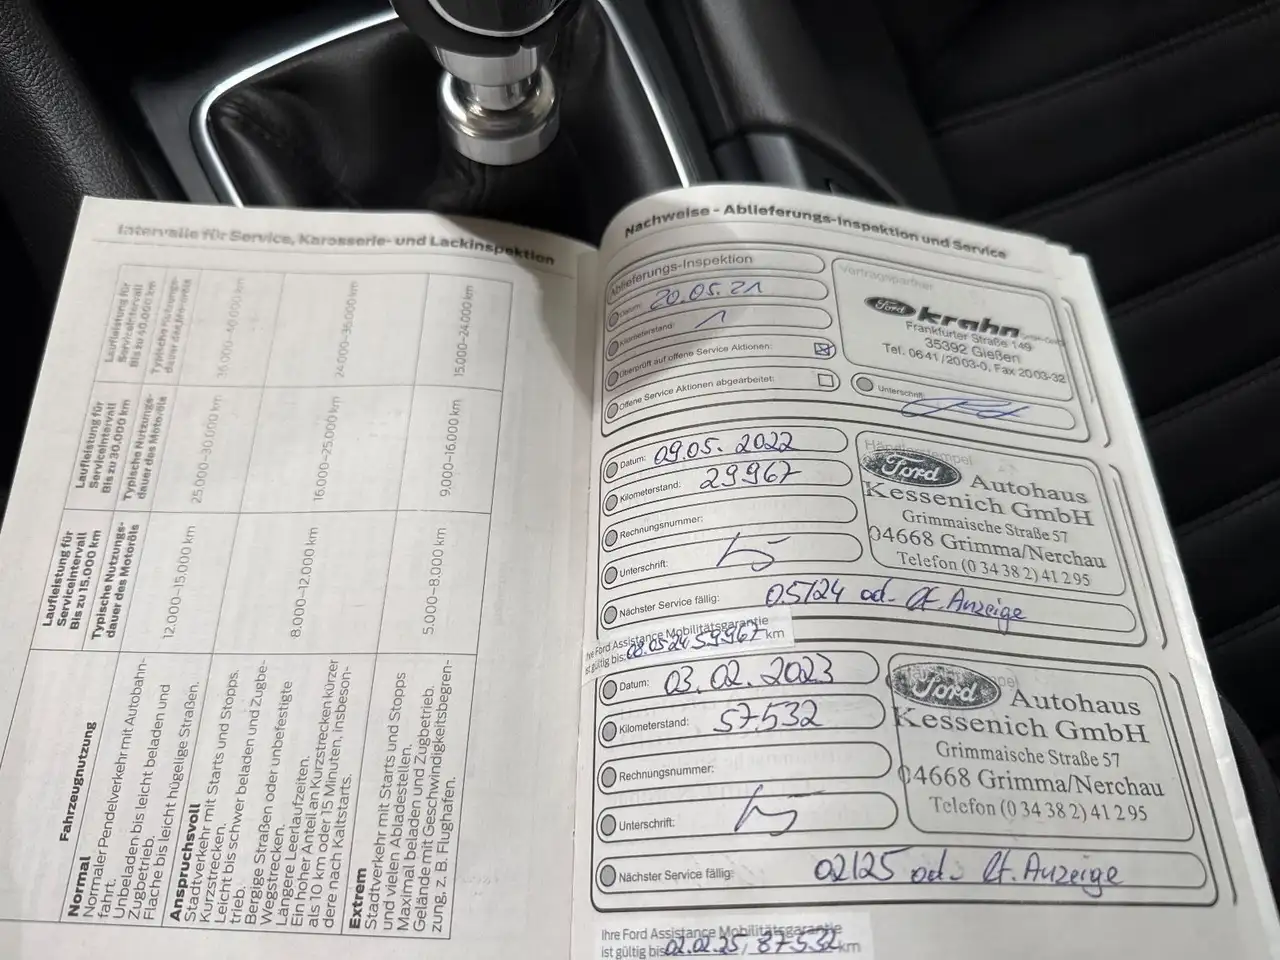 Intervalle für Service, Karosserie- und Lackinspektion
Fahrzeugnutzung
Laufleistung für
Serviceintervall
Bis zu 15.000 km
Typische Nutzungs-
dauer des Motoröls
Laufleistung für
Serviceintervall
Bis zu 30.000 km
Typische Nutzungs-
dauer des Motoröls
Laufleistung für
Serviceintervall
Bis zu 40.000 km
Typische Nutzungs-
dauer des Motoröls
Normal
Normaler Pendelverkehr mit Autobahn-
fahrt.
Unbeladen bis leicht beladen und
Zugbetrieb.
Flache bis leicht hügelige Straßen.
12.000–15.000 km
25.000–30.000 km
35.000–40.000 km
Anspruchsvoll
Stadtverkehr mit Starts und Stopps.
Kurzstrecken.
Leicht bis schwer beladen und Zugbe-
trieb.
Bergige Straßen oder unbefestigte
Wegstrecken.
Längere Leerlaufzeiten.
Ein hoher Anteil an Kurzstrecken kürzer
als 10 km oder 15 Minuten, insbeson-
dere nach Kaltstarts.
8.000–12.000 km
16.000–25.000 km
24.000–35.000 km
Extrem
Stadtverkehr mit Starts und Stopps
und vielen Abladestellen.
Maximal beladen und Zugbetrieb.
Gelände mit Geschwindigkeitsbegren-
zung, z. B. Flughafen.
5.000–8.000 km
9.000–16.000 km
15.000–24.000 km
Nachweise - Ablieferungs-Inspektion und Service
Ablieferungs-Inspektion
Datum: 20.05.21
Kilometerstand: 1
Überprüft auf offene Service Aktionen:
Offene Service Aktionen abgearbeitet:
Vertragspartner
Ford krahn
Frankfurter Straße 149
35392 Gießen
Tel. 0641/2003-0, Fax 2003-32
Unterschrift:
Datum: 09.05.2022
Kilometerstand: 29967
Rechnungsnummer:
Unterschrift:
Nächster Service fällig: 05/24 od. lt. Anzeige
Händlerstempel
Ford Autohaus
Kessenich GmbH
Grimmaische Straße 57
04668 Grimma/Nerchau
Telefon (0 34 38 2) 4 12 95
Ihre Ford Assistance Mobilitätsgarantie
ist gültig bis: 08.05.24 59967 km
Datum: 03.02.2023
Kilometerstand: 57532
Rechnungsnummer:
Unterschrift:
Nächster Service fällig: 02/25 od. lt. Anzeige
Ford Autohaus
Kessenich GmbH
Grimmaische Straße 57
04668 Grimma/Nerchau
Telefon (0 34 38 2) 4 12 95
Ihre Ford Assistance Mobilitätsgarantie
ist gültig bis 02.02.25, 87532 km